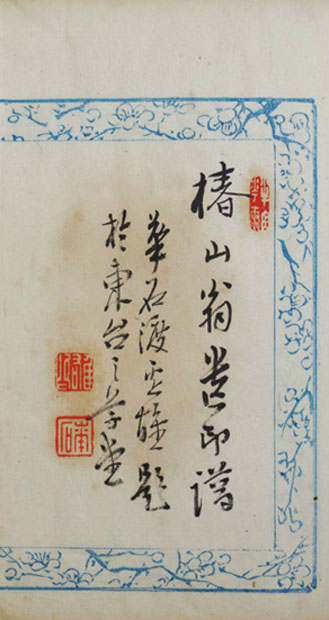 椿山翁遺印譜
華石渡雄題
於東台之草堂